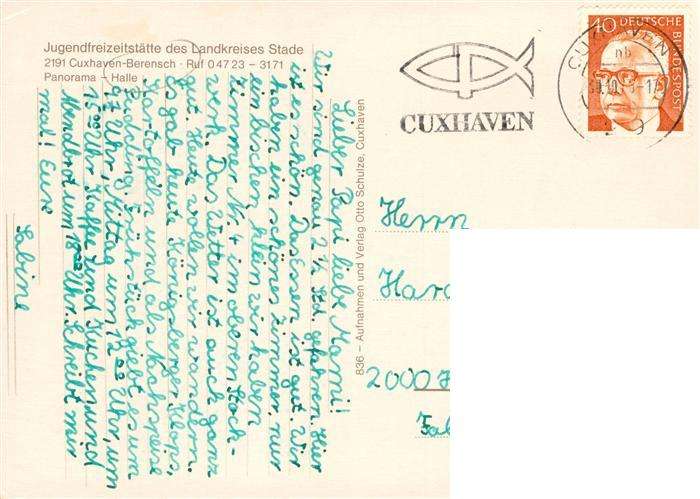 Jugendfreizeitstätte des Landkreises Stade
2191 Cuxhaven-Berensch · Ruf 0 47 23 – 3171
Panorama – Halle
Lieber Papi, liebe Mami!
Wir sind genau 2 ½ Std gefahren. Hier
ist es schön. Das Essen ist gut. Wir
haben ein schönes Zimmer, nur
ein bischen klein. Wir haben
Zimmer Nr. 4 im oberen Stock-
werk. Das Wetter ist auch ganz
gut. Heute wollen wir wandern.
Es gab heute Königsberger Klops,
Kartoffeln und als Nachspeise
Frühstück giebt es um
Uhr, Mittag um 12 00 Uhr, um
15 00 Uhr Kaffee und Kuchen und
Abendbrot um 18 00 Uhr. Schreibt mir
mal! Eure
Sabine
836 – Aufnahmen und Verlag Otto Schulze, Cuxhaven
CUXHAVEN
CUXHAVEN
40 DEUTSCHE BUNDESPOST
Herrn
2000